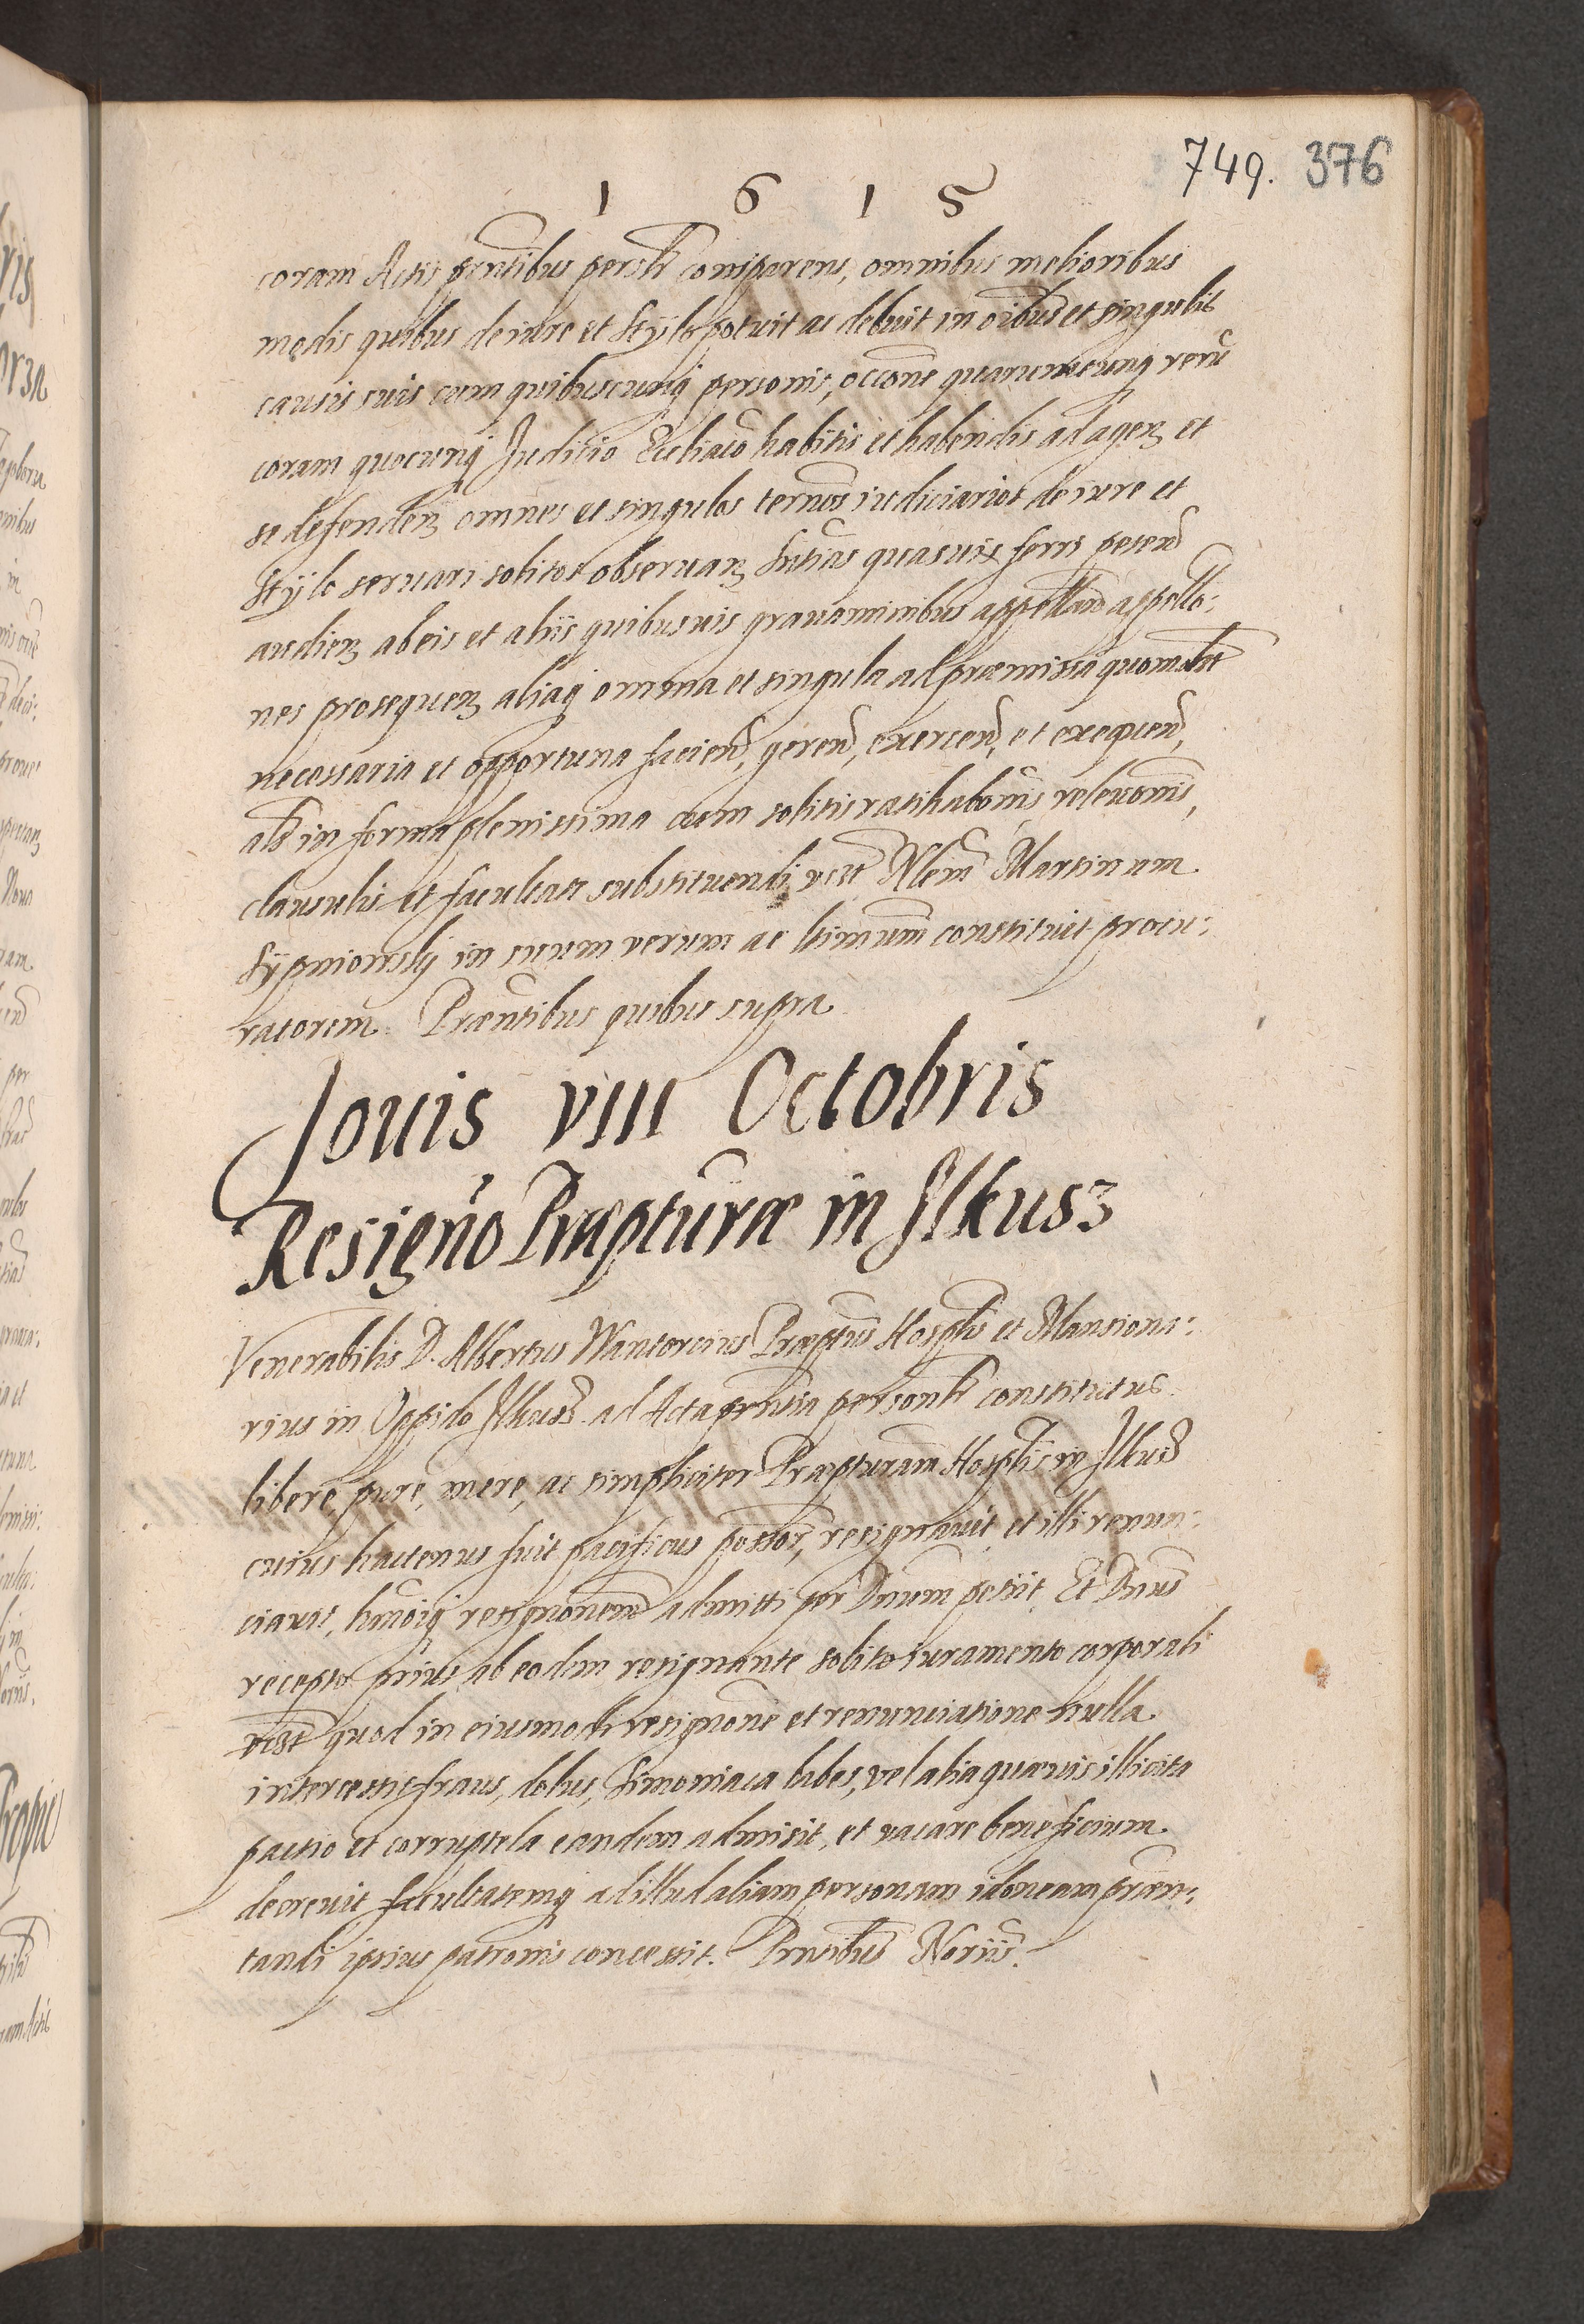 749. 376
1 6 1 5
coram Actis pñtibus persłr comparens, omnibus melioribus
modis quibus de iure et Stylo potuit ac debuit in oibus et singulis
causis suis cum quibuscunq personis, occõne quarumcunq rerũ
coram quocunq Juditio Eccliaco habitis et habendis ad agenz et
se defendenz omnes et singulos termõs iudiciarios de iure et
Stylo seruari solitos obseruanz sntias quasuis ferri petend
audienz ab eis et aliis quibusuis grauaminibus appelland appello:
nes prosequenz aliaq omnia et singula ad præmissa quomłt
necessaria et opportuna faciend, gerend, exercend, et exequend,
als in forma plenissima cum solitis ratihabõnis releuõnis,
clausulis et facultate substituendi vczt Nlem Martinum
Sypniowsky in suum verum ac ltimum constituit procu:
ratorem. Præntibus quibus supra
Jouis VIII Octobris
Resigño Præpturæ in Jlkusz
Venerabilis D. Albertus Wantorcius Præptus Hosptlis et Mansiona:
rius in Oppido Jlkusz ad Acta prñtia personłr constitutus
libere, pure, mere, ac simpliciter Præpturam Hosptlis in Jlkusz
cuius hactenus fuit pacificus possor, resignauit et illi renun:
ciauit, hmõiq resignõnem admitti per Dnum petiit. Et Dnus
recepto prius ab eodem resignante solito iuramento corporali
vczt quod in eiusmodi resignõne et renunciatione nulla
intercessit fraus, dolus, Simoniaca labes, vel alia quævis illicita
pactio et corruptela eandem admisit, et vacare beneficium
decreuit facultatemq ad illud aliam personam idoneam præn:
tandi ipsius patronis concessit. Prntibus Noriis.